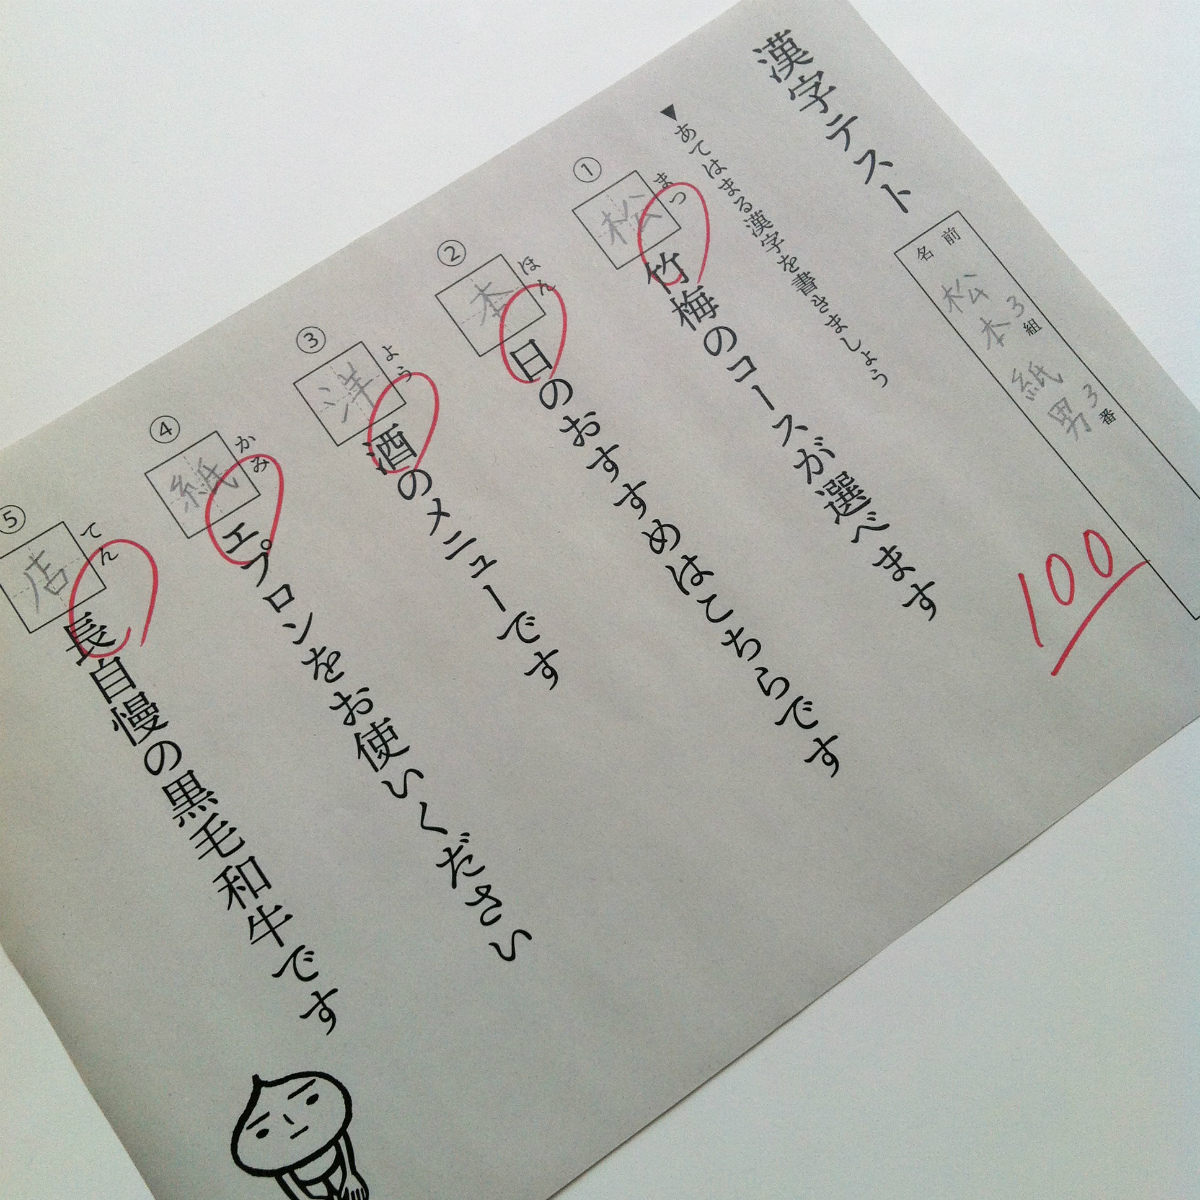 漢字テスト
名前
松本紙男
3組3番
100
▼あてはまる漢字を書きましょう
①
まつ
松竹梅のコースが選べます
②
ほん
本日のおすすめはこちらです
③
よう
洋酒のメニューです
④
かみ
紙エプロンをお使いください
⑤
てん
店長自慢の黒毛和牛です